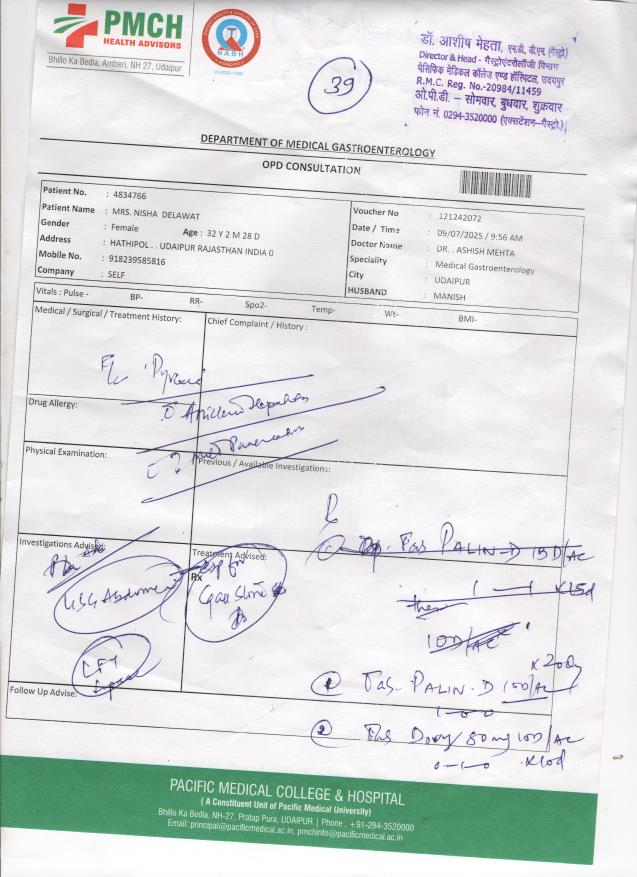 PMCH
HEALTH ADVISORS
Bhillo Ka Bedla, Amberi, NH 27, Udaipur
NABH
39
डॉ. आशीष मेहता, एम.डी, डी.एम. (गैस्ट्रो)
Director & Head - गैस्ट्रोएंटरोलॉजी विभाग
पेसिफिक मेडिकल कॉलेज एण्ड हॉस्पिटल, उदयपुर
R.M.C. Reg. No.-20984/11459
ओ.पी.डी. – सोमवार, बुधवार, शुक्रवार
फोन नं. 0294-3520000 (एक्सटेंशन–गैस्ट्रो.)
DEPARTMENT OF MEDICAL GASTROENTEROLOGY
OPD CONSULTATION
Patient No. : 4834766
Patient Name : MRS. NISHA DELAWAT
Gender : Female Age : 32 Y 2 M 28 D
Address : HATHIPOL . . UDAIPUR RAJASTHAN INDIA 0
Mobile No. : 918239585816
Company : SELF
Voucher No : 121242072
Date / Time : 09/07/2025 / 9:56 AM
Doctor Name : DR. . ASHISH MEHTA
Speciality : Medical Gastroenterology
City : UDAIPUR
HUSBAND : MANISH
Vitals : Pulse - BP- RR- Spo2- Temp- Wt- BMI-
Medical / Surgical / Treatment History:
Chief Complaint / History :
Drug Allergy:
Physical Examination:
Previous / Available Investigations:
Investigations Advised:
USG Abdomen
LFT
Treatment Advised:
Rx
Gall Stone
PALIN-D
1 - 1 x 15d
10D/AC
x 20d
① Tas. PALIN-D 10D/AC
1-0-0
② Tas 80mg 10D/AC
0-1-0 x10d
Follow Up Advise:
PACIFIC MEDICAL COLLEGE & HOSPITAL
( A Constituent Unit of Pacific Medical University)
Bhillo Ka Bedla, NH-27, Pratap Pura, UDAIPUR | Phone : +91-294-3520000
Email: principal@pacificmedical.ac.in, pmchinfo@pacificmedical.ac.in